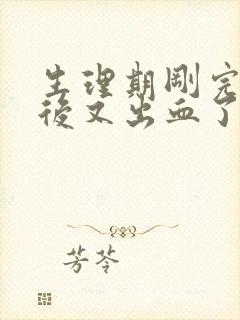 生理期剛完
後又出血了
芳苓